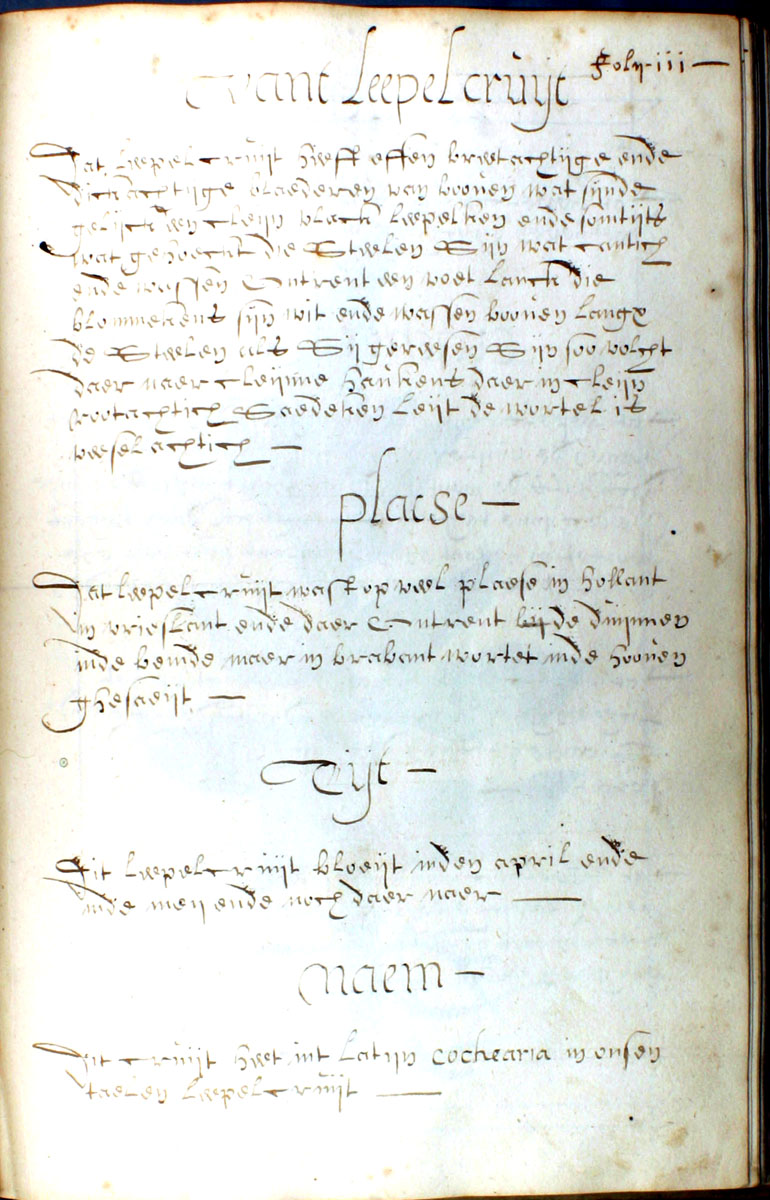 Foly-iii
Vant leepelcruijt
Dat leepelcruijt heeft effen bruetachtijge ende
dickachtijge blaederen van booven wat sijnde
gelijck een cleijn vlack leepelken ende somtijts
wat gehoeckt die steelen sijn wat cantich
ende wassen omtrent een voet lanck die
blommekens sijn wit ende wassen booven langx
de steelen als sij gereesen sijn soo volcht
daer naer cleijnne haukens daer in cleijn
rootachtich saedeken leijt de wortel is
veeselachtich
placse
Dat leepelcruijt wast op veel plaese in hollant
in vrieslant ende daer omtrent bij de duijnnen
inde bemde maer in brabant wortet inde hooven
ghesaeijt
Tijt
Dit leepelcruijt bloeijt inden april ende
inde meij ende noch daer naer
naem
Dit cruijt heet int latijn cochearia in onsen
taelen leepelcruijt